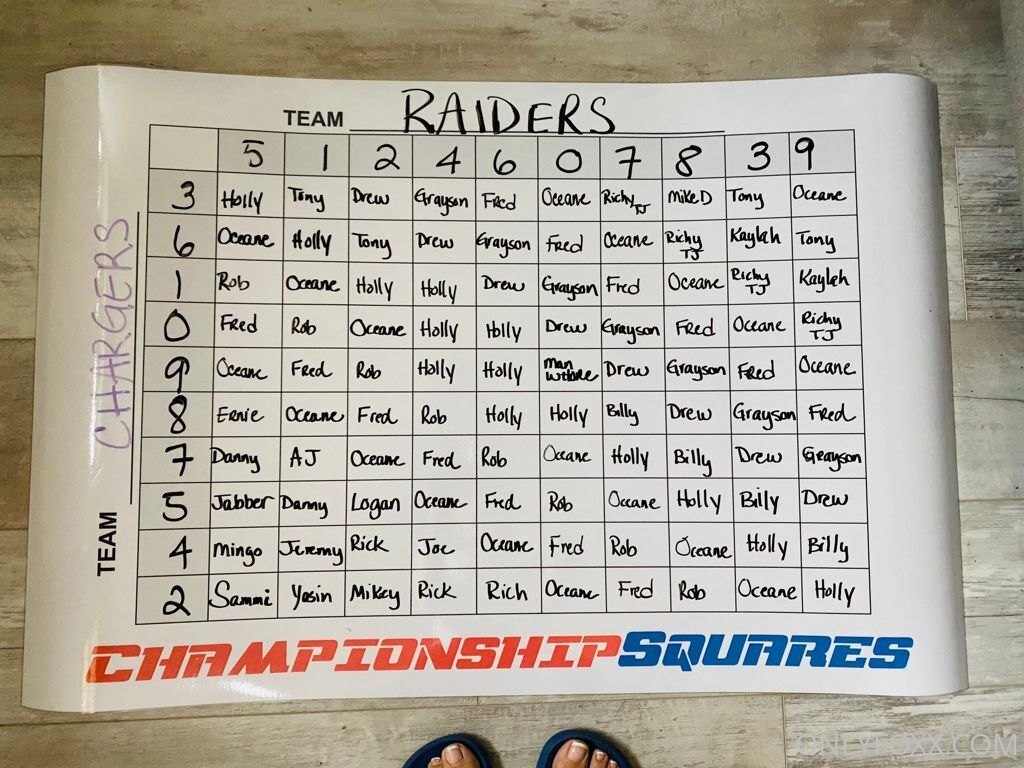 TEAM RAIDERS
TEAM CHARGERS
5 1 2 4 6 0 7 8 3 9
3 Holly Tony Drew Grayson Fred Oceane Richy TJ Mike D Tony Oceane
6 Oceane Holly Tony Drew Grayson Fred Oceane Richy TJ Kaylah Tony
1 Rob Oceane Holly Holly Drew Grayson Fred Oceane Richy TJ Kaylah
0 Fred Rob Oceane Holly Holly Drew Grayson Fred Oceane Richy TJ
9 Oceane Fred Rob Holly Holly Man Drew Grayson Fred Oceane
8 Ernie Oceane Fred Rob Holly Holly Billy Drew Grayson Fred
7 Danny AJ Oceane Fred Rob Oceane Holly Billy Drew Grayson
5 Jabber Danny Logan Oceane Fred Rob Oceane Holly Billy Drew
4 Mingo Jeremy Rick Joe Oceane Fred Rob Oceane Holly Billy
2 Sammi Yasin Mikey Rick Rich Oceane Fred Rob Oceane Holly
CHAMPIONSHIPSQUARES
ONLYFOXX.COM